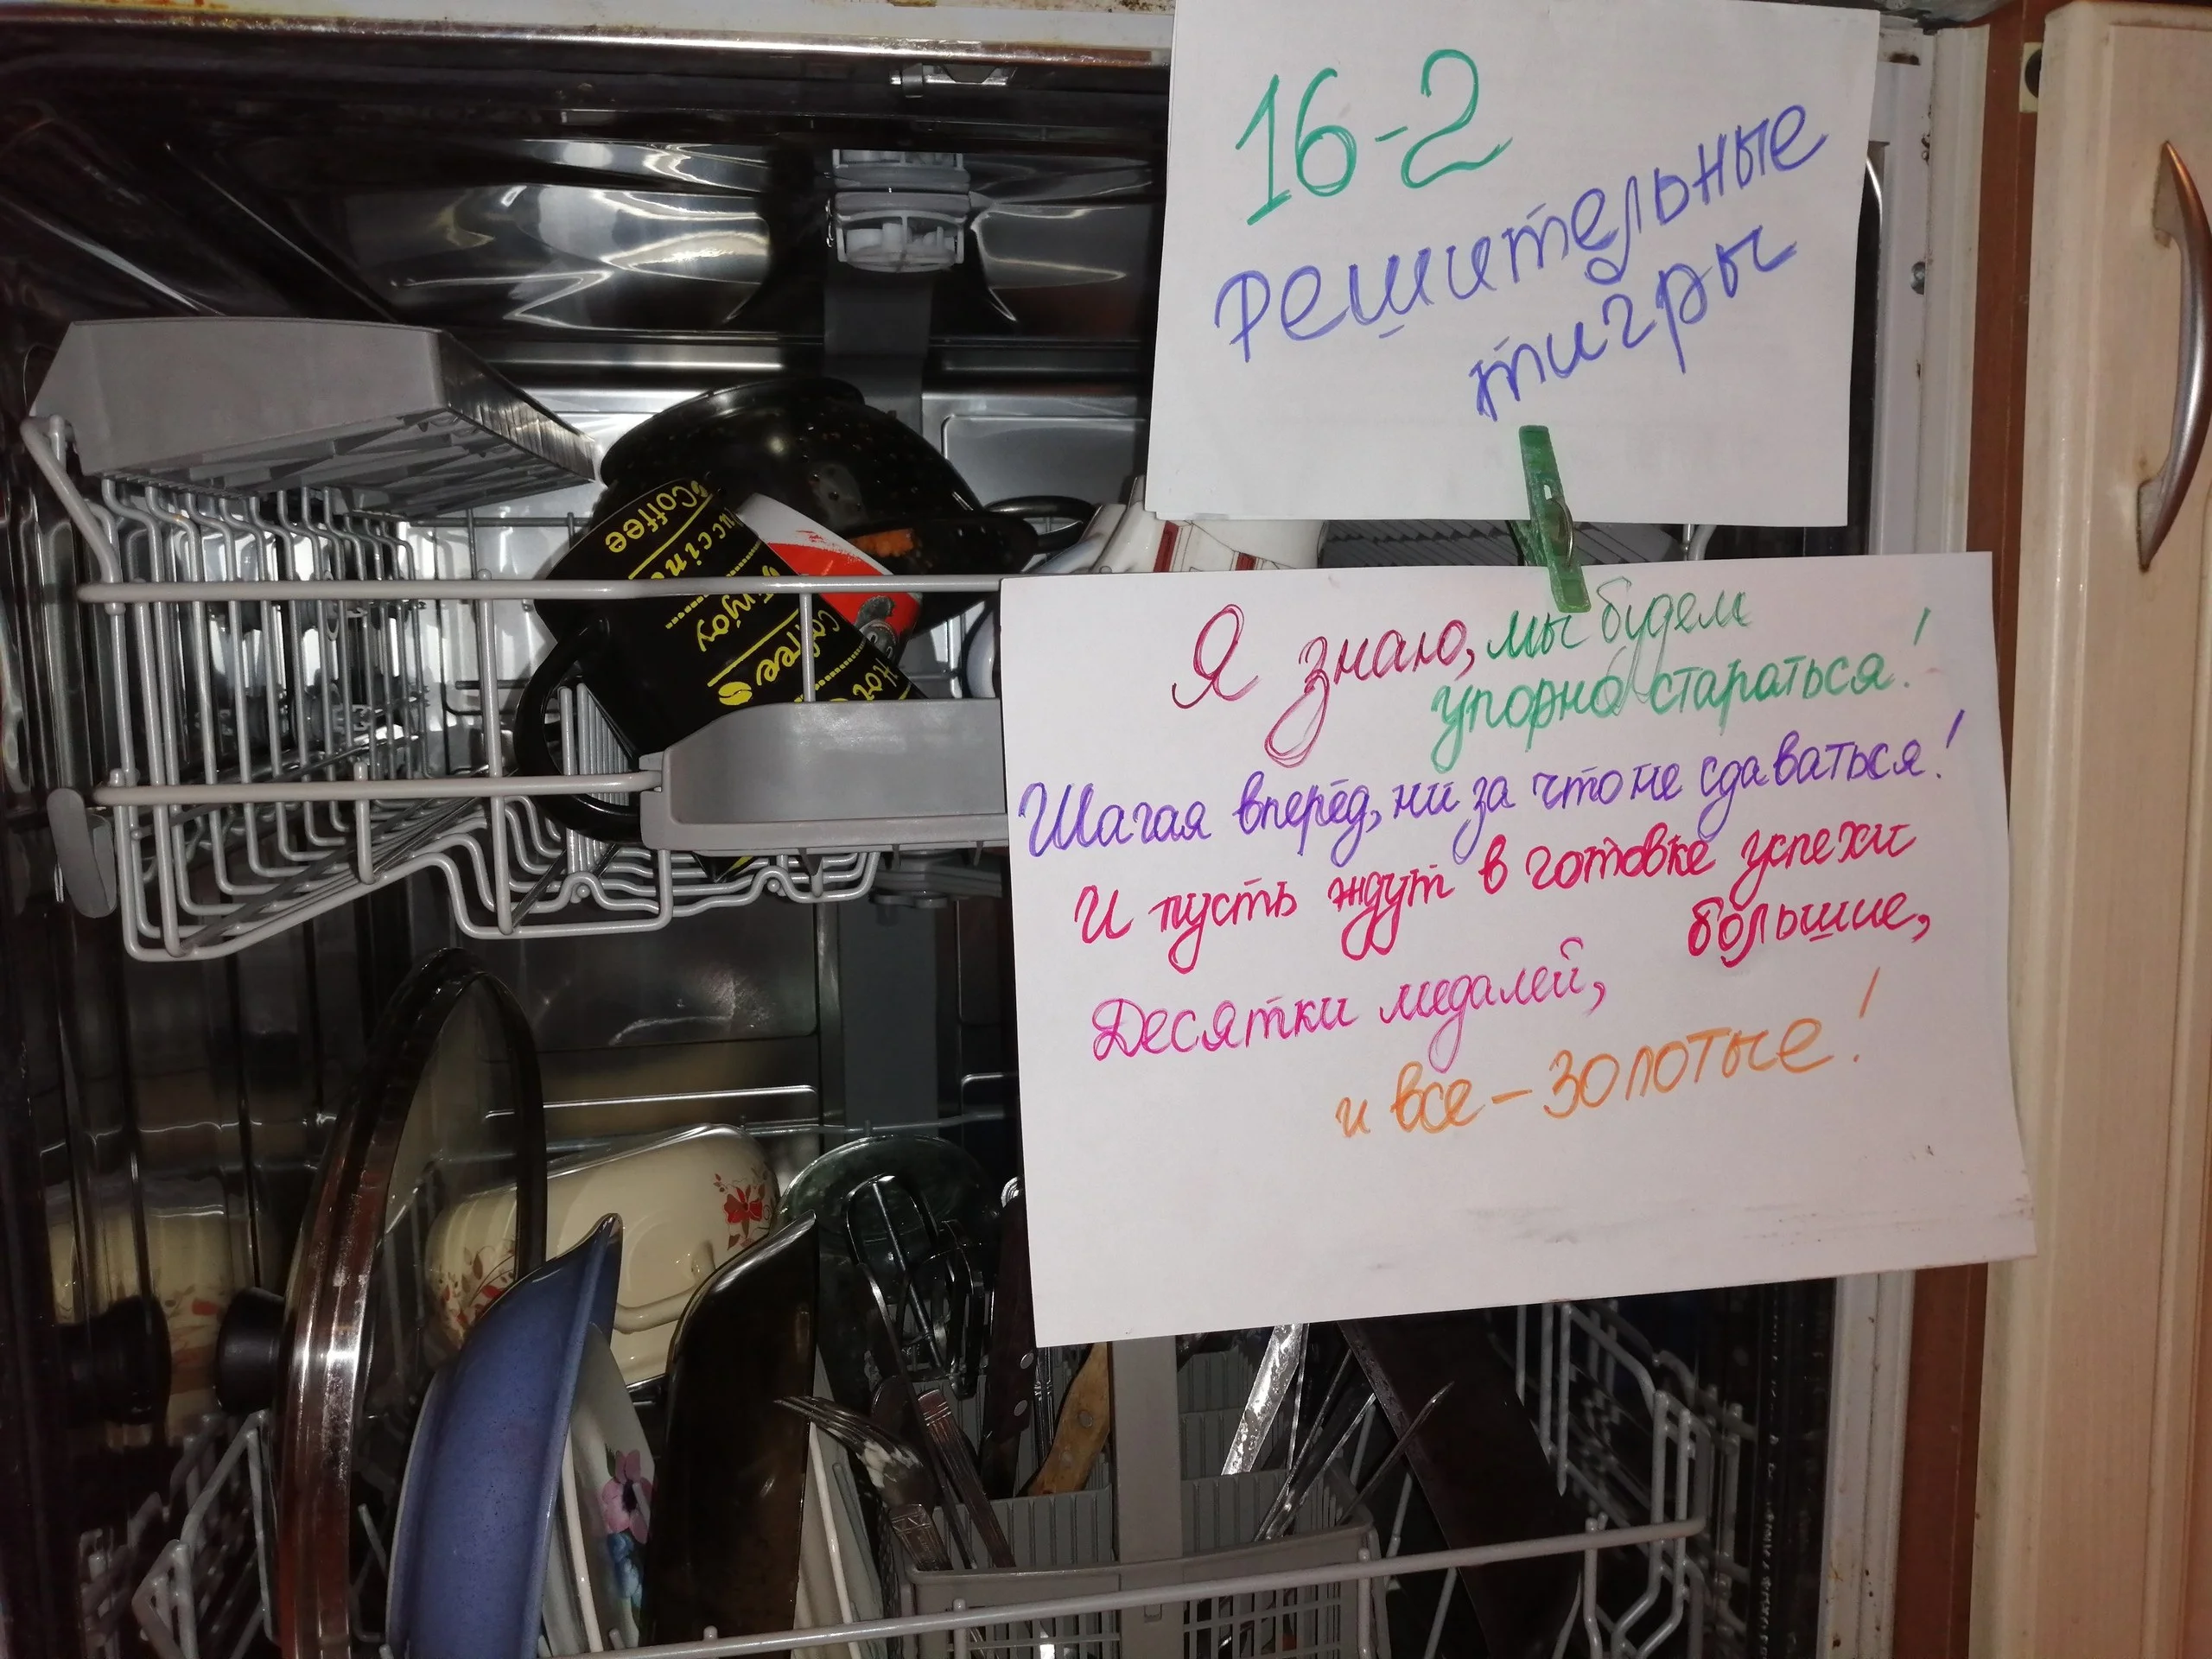 16-2
Решительные
тигры
Я знаю, мы будем
упорно стараться!
Шагая вперёд, ни за что не сдаваться!
И пусть ждут в готовке успехи
большие,
Десятки медалей,
и все - золотые!
Coffee
Enjoy
Coffee
Hot